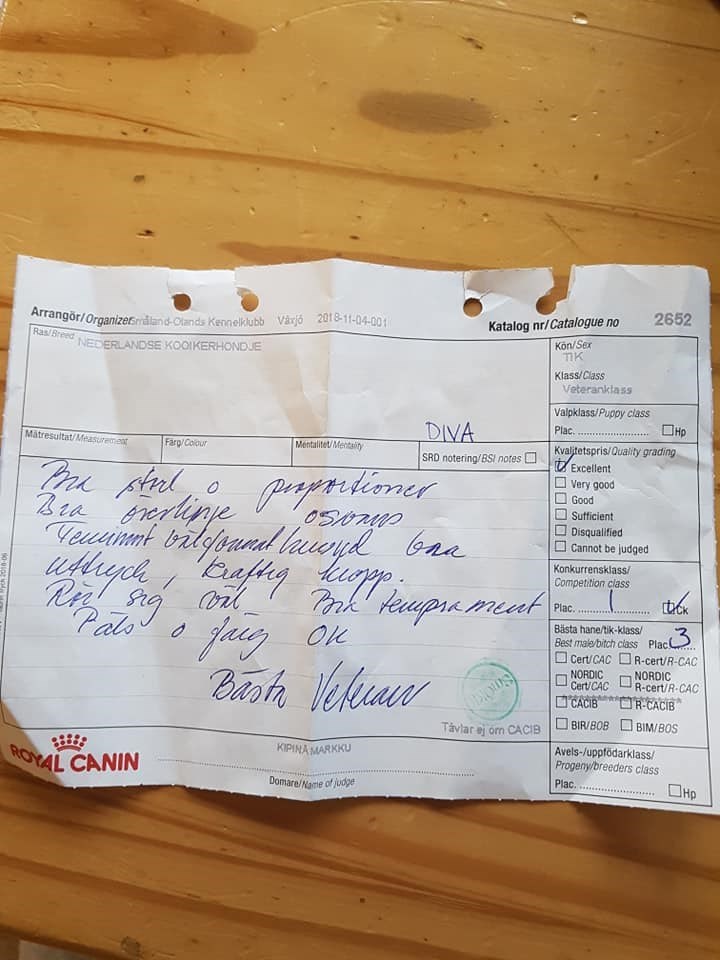 Arrangör/Organizer Småland-Ölands Kennelklubb Växjö 2018-11-04-001
Katalog nr/Catalogue no 2652
Ras/Breed NEDERLANDSE KOOIKERHONDJE
Kön/Sex
TIK
Klass/Class
Veteranklass
Valpklass/Puppy class
Plac. Hp
DIVA
Mätresultat/Measurement Färg/Colour Mentalitet/Mentality SRD notering/BSI notes
Kvalitetspris/Quality grading
Excellent
Very good
Good
Sufficient
Disqualified
Cannot be judged
Bra storl o proportioner
Bra överlinje
Feminint välformat huvud bra
uttryck, kraftig kropp.
Rör sig väl Bra temprament
Päls o färg OK
Bästa Veteran
Konkurrensklass/
Competition class
Plac. 1 Ck
Bästa hane/tik-klass/
Best male/bitch class Plac. 3
Cert/CAC R-cert/R-CAC
NORDIC Cert/CAC NORDIC R-cert/R-CAC
CACIB R-CACIB
BIR/BOB BIM/BOS
Tävlar ej om CACIB
Avels-/uppfödarklass/
Progeny/breeders class
Plac. Hp
ROYAL CANIN
KIPINÄ MARKKU
Domare/Name of judge